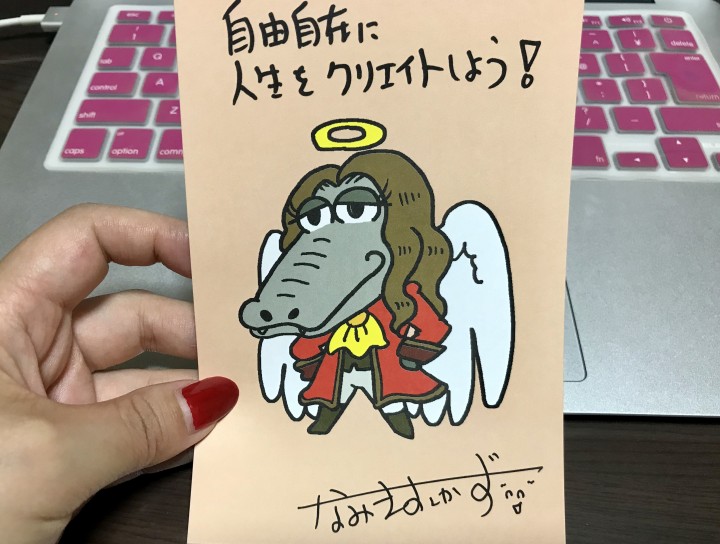 自由自在に
人生をクリエイトしよう!
esc
delete
tab
Q
enter
control
A
return
shift
Z
caps
option
comm
fn